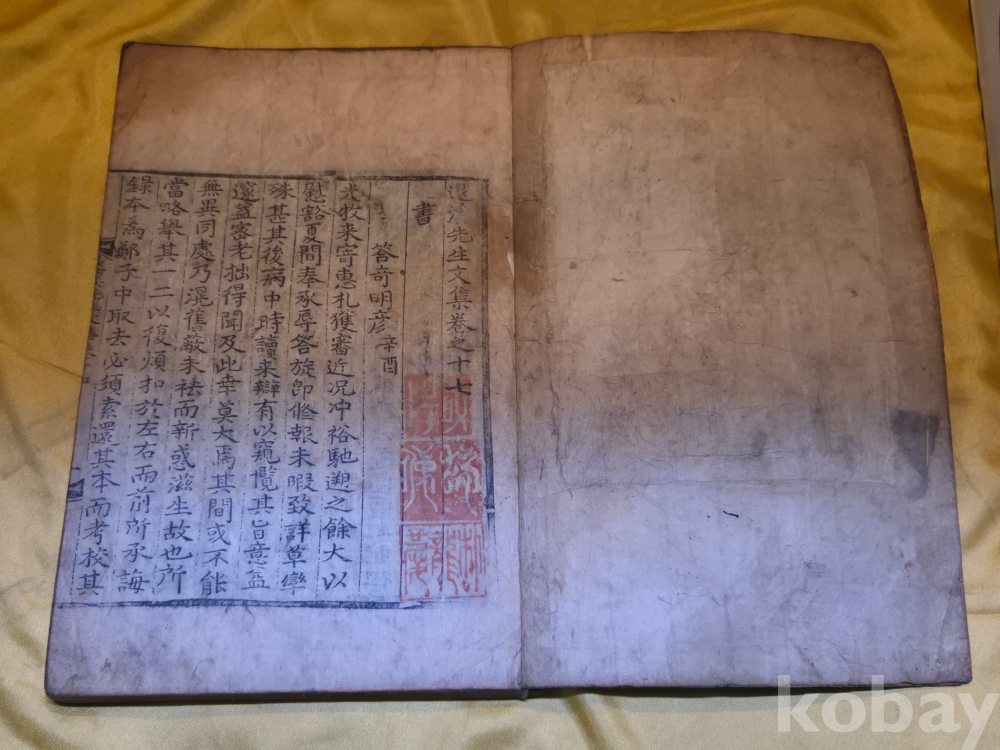 退溪先生文集卷之十七
書
答奇明彦 辛酉
光牧来寄惠札獲審近况冲裕馳遡之餘大以
慰豁夏間奉承辱答旋即脩報未暇致詳草
殊甚其後病中時讀来辯有以窺攬其旨意益
邃益密老拙得聞及此幸莫大焉其間或不能
無異同處乃滉舊蔽未祛而新惑滋生故也所
當略舉其一二以復煩扣於左右而前所承誨
錄本爲鄭子中取去必須索還其本而考校其
kobay